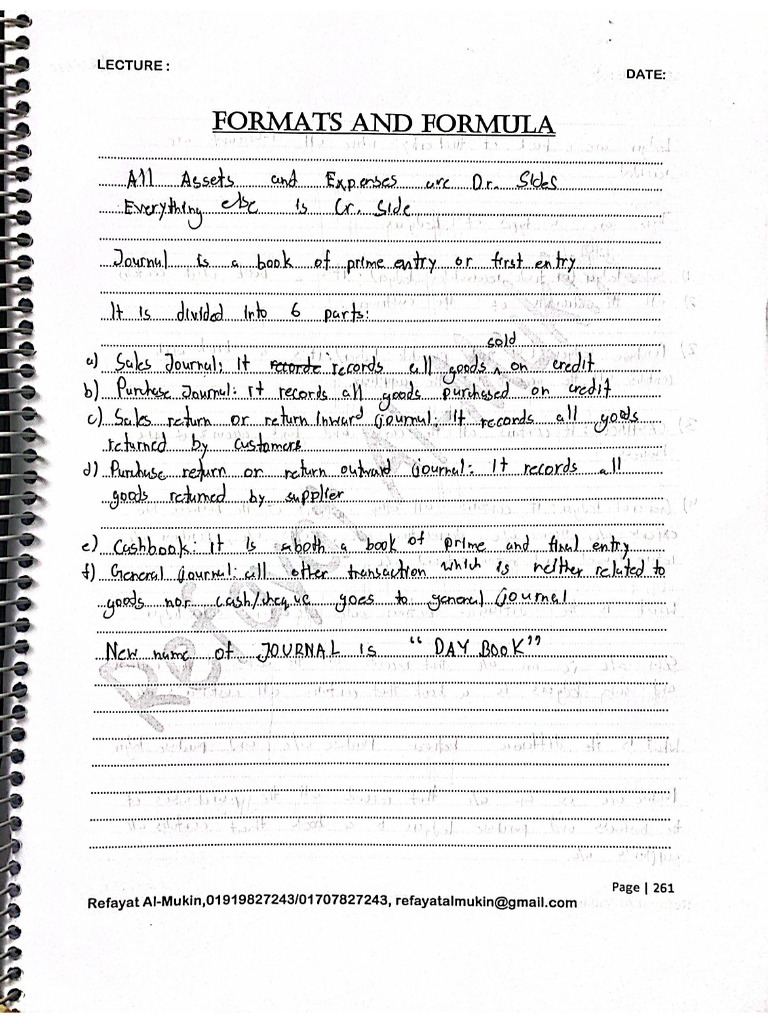 LECTURE :
DATE:
FORMATS AND FORMULA
All Assets and Expenses are Dr. Sides
Everything else is Cr. Side
Journal is a book of prime entry or first entry
It is divided into 6 parts:
sold
a) Sales Journal: It recorde records all goods ^ on credit
b) Purchase Journal: It records all goods purchased on credit
c) Sales return or return Inward journal: It records all goods
returned by customers
d) Purchase return or return outward journal: It records all
goods returned by supplier
e) Cashbook: it is aboth a book of prime and final entry
f) General journal: all other transaction which is neither related to
goods nor cash/cheque goes to general journal
New name of JOURNAL is "DAY BOOK"
Refayat Al Mukin
Page | 261
Refayat Al-Mukin,01919827243/01707827243, refayatalmukin@gmail.com